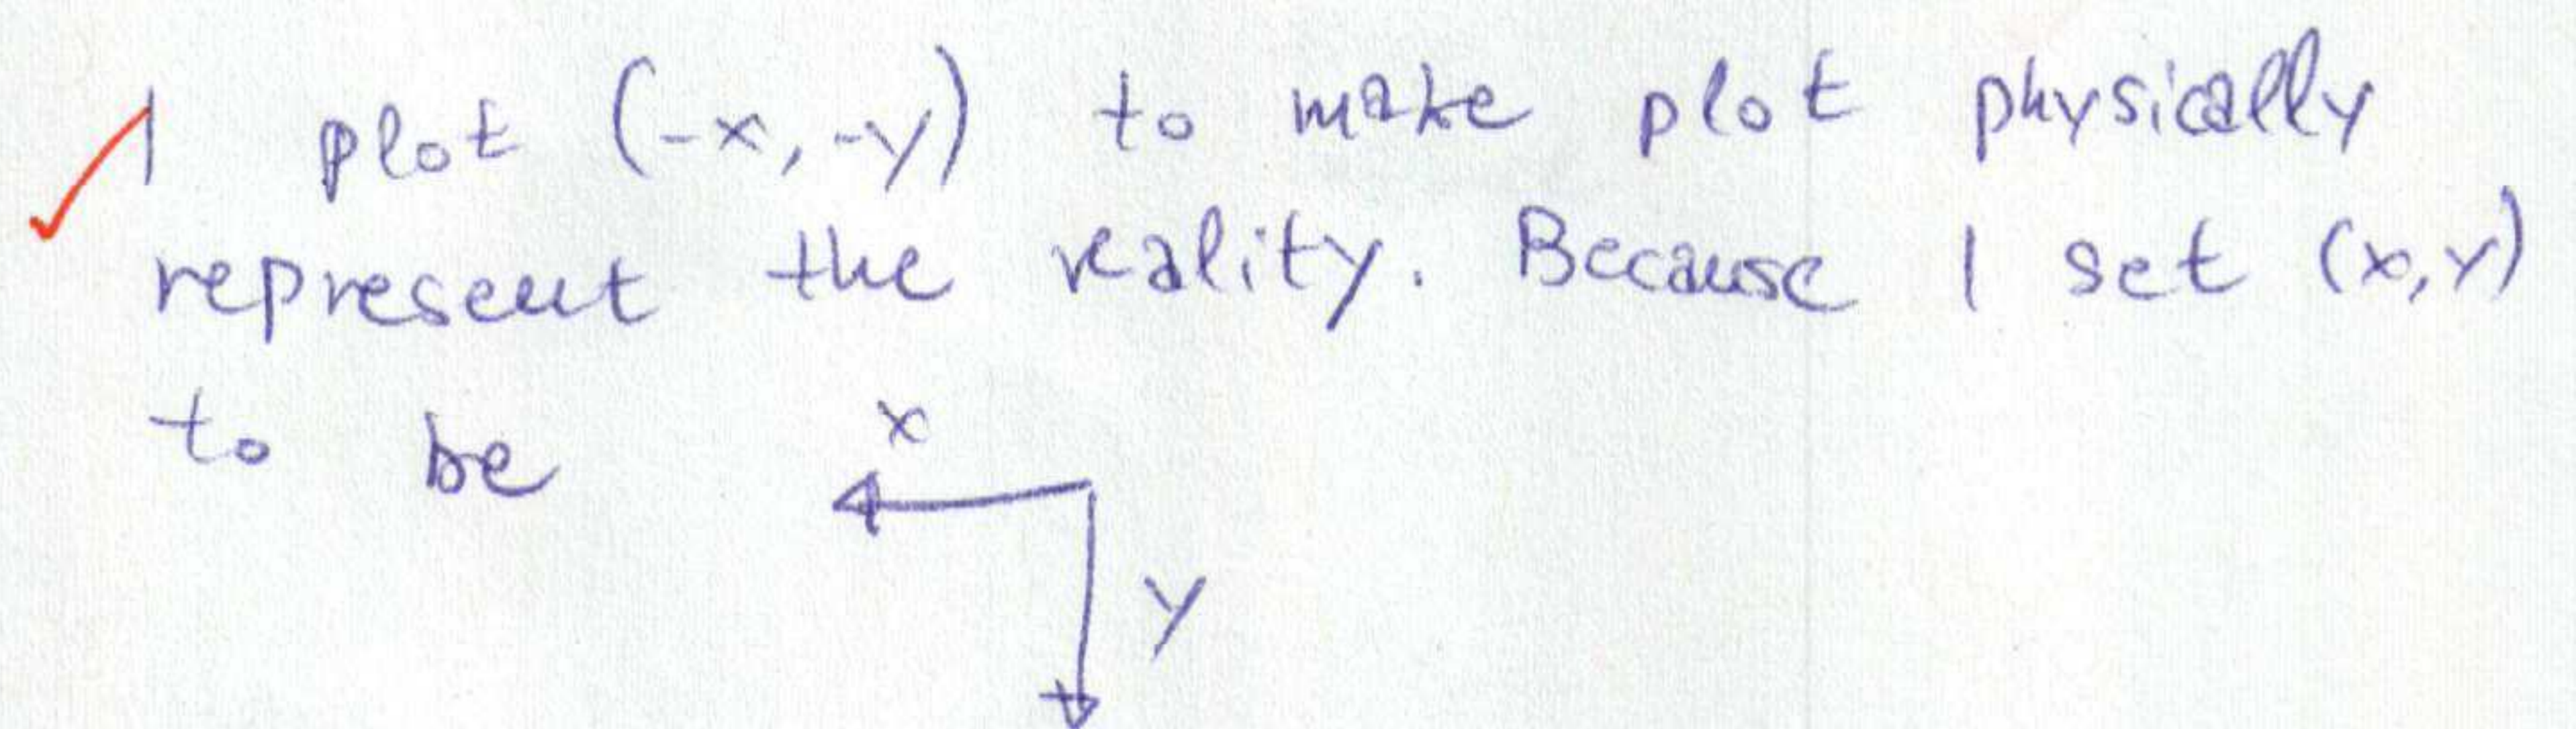 I plot (-x, -y) to make plot physically
represent the reality. Because I set (x, y)
to be
x
y